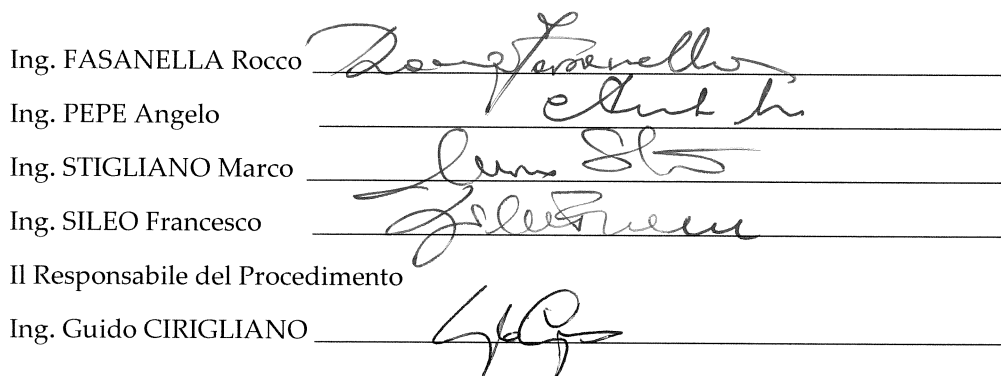 Ing. FASANELLA Rocco Rocco Fasanella
Ing. PEPE Angelo
Ing. STIGLIANO Marco
Ing. SILEO Francesco
Il Responsabile del Procedimento
Ing. Guido CIRIGLIANO